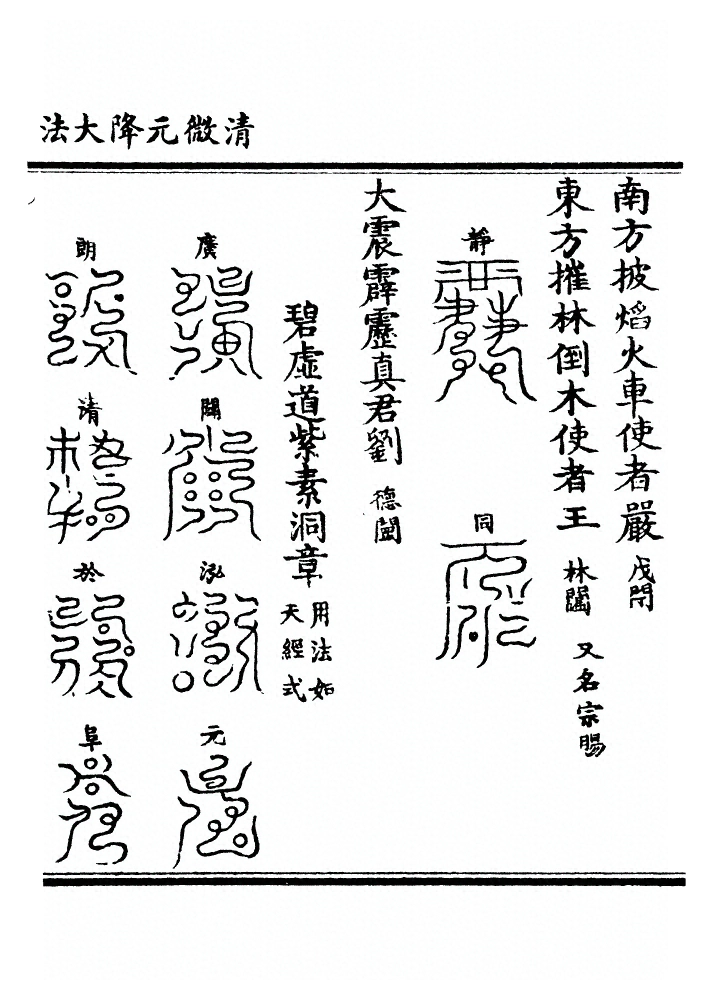 清微元降大法
南方披熖火車使者嚴 戊閇
東方摧林倒木使者王 林 又名宗賜
靜
同
大震霹靂真君劉 德
碧虛道紫素洞章 用法如
天經式
廣
闢
泓
元
朗
清
於
阜